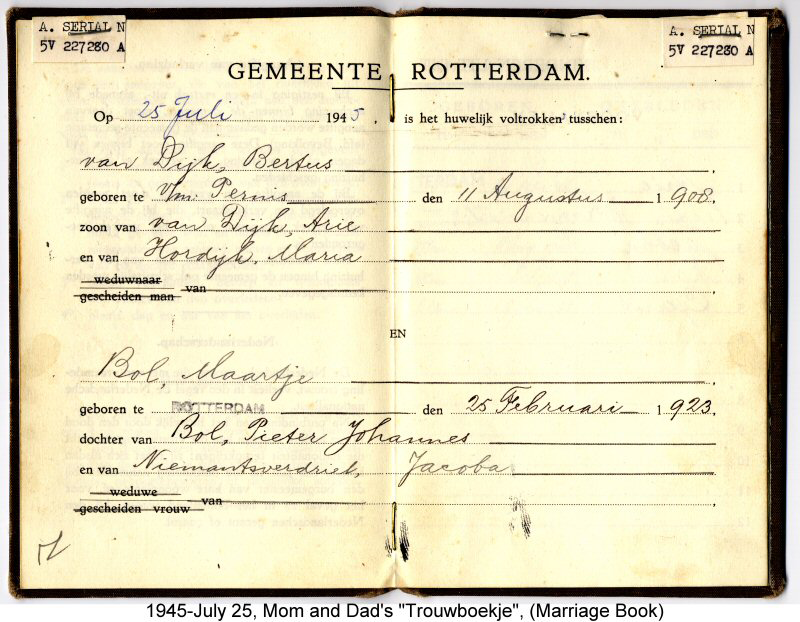 A. SERIAL N
5V 227280 A
A. SERIAL N
5V 227280 A
GEMEENTE ROTTERDAM.
Op 25 Juli 1945, is het huwelijk voltrokken tusschen:
van Dijk, Bertus
geboren te v/m Pernis den 11 Augustus 1908.
zoon van van Dijk, Arie
en van Hordijk, Maria
weduwnaar
gescheiden man van
EN
Bol, Maartje
geboren te ROTTERDAM den 25 Februari 1923.
dochter van Bol, Pieter Johannes
en van Niemantsverdriet, Jacoba
weduwe
gescheiden vrouw van
1945-July 25, Mom and Dad's "Trouwboekje", (Marriage Book)